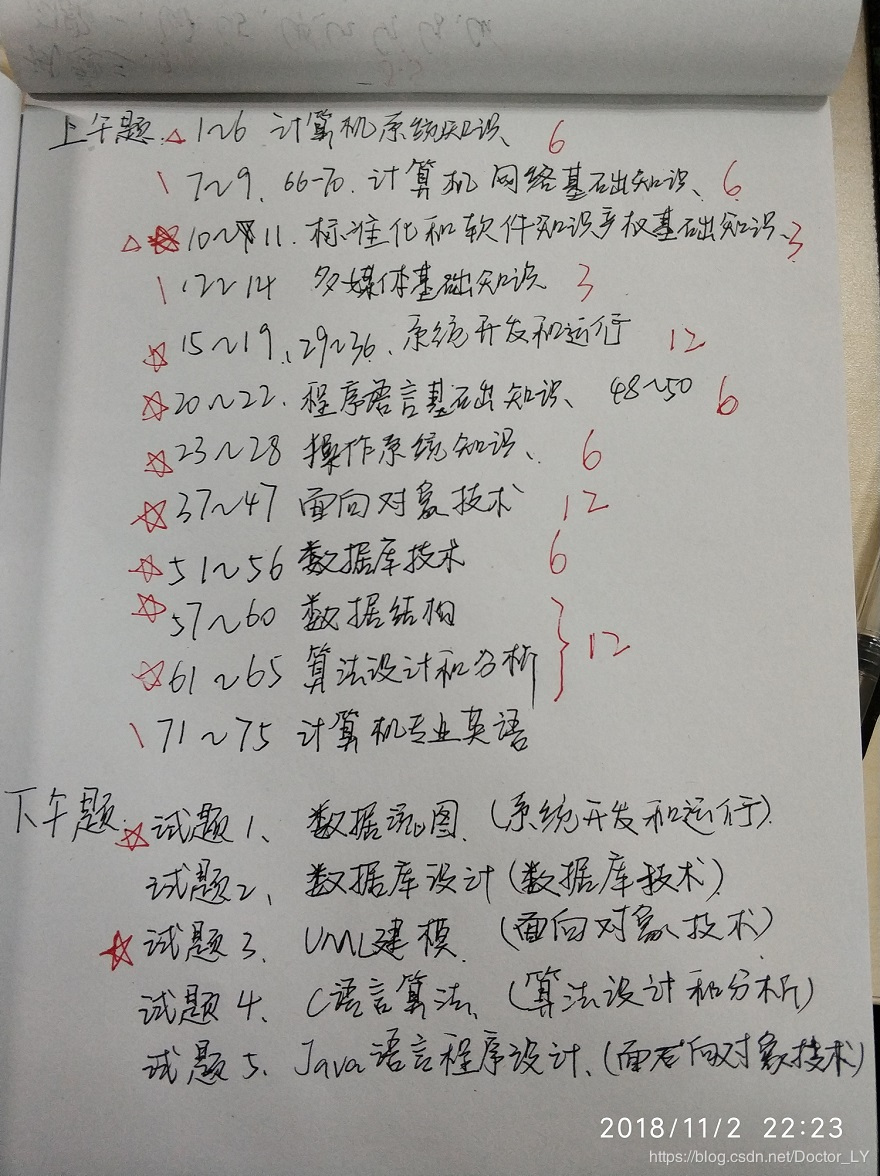 上午题. △ 1~6 计算机系统知识、 6
\ 7~9、66-70. 计算机网络基础知识、 6
△ 10~11. 标准化和软件知识产权基础知识、3
\ 12~14 多媒体基础知识 3
☆ 15~19、29~36、系统开发和运行 12
☆ 20~22. 程序语言基础知识、 48~50 6
☆ 23~28 操作系统知识、 6
☆ 37~47 面向对象技术 12
☆ 51~56 数据库技术 6
☆ 57~60 数据结构
} 12
☆ 61~65 算法设计和分析
\ 71~75 计算机专业英语
下午题. ☆ 试题1、 数据流图. (系统开发和运行).
试题2、 数据库设计(数据库技术)
☆ 试题3、 UML建模. (面向对象技术)
试题4、 C语言算法、(算法设计和分析)
试题5、 Java语言程序设计、(面向对象技术)
2018/11/2 22:23
https://blog.csdn.net/Doctor_LY